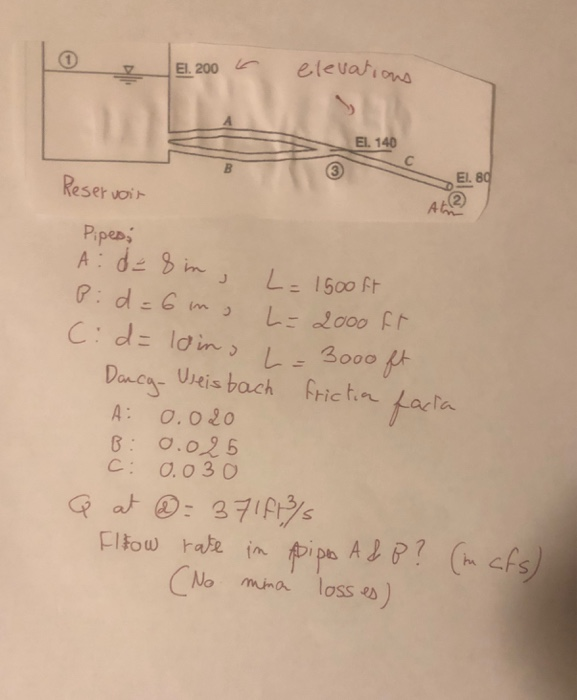 1
El. 200
elevations
A
El. 140
C
B
3
El. 80
2
Reservoir
Atm
Pipes:
A: d = 8 in, L = 1500 ft
B: d = 6 in, L = 2000 ft
C: d = 10 in, L = 3000 ft
Darcy-Weisbach friction factor
A: 0.020
B: 0.025
C: 0.030
Q at ② = 3.71 ft³/s
Flow rate in pipes A & B? (in cfs)
(No minor losses)